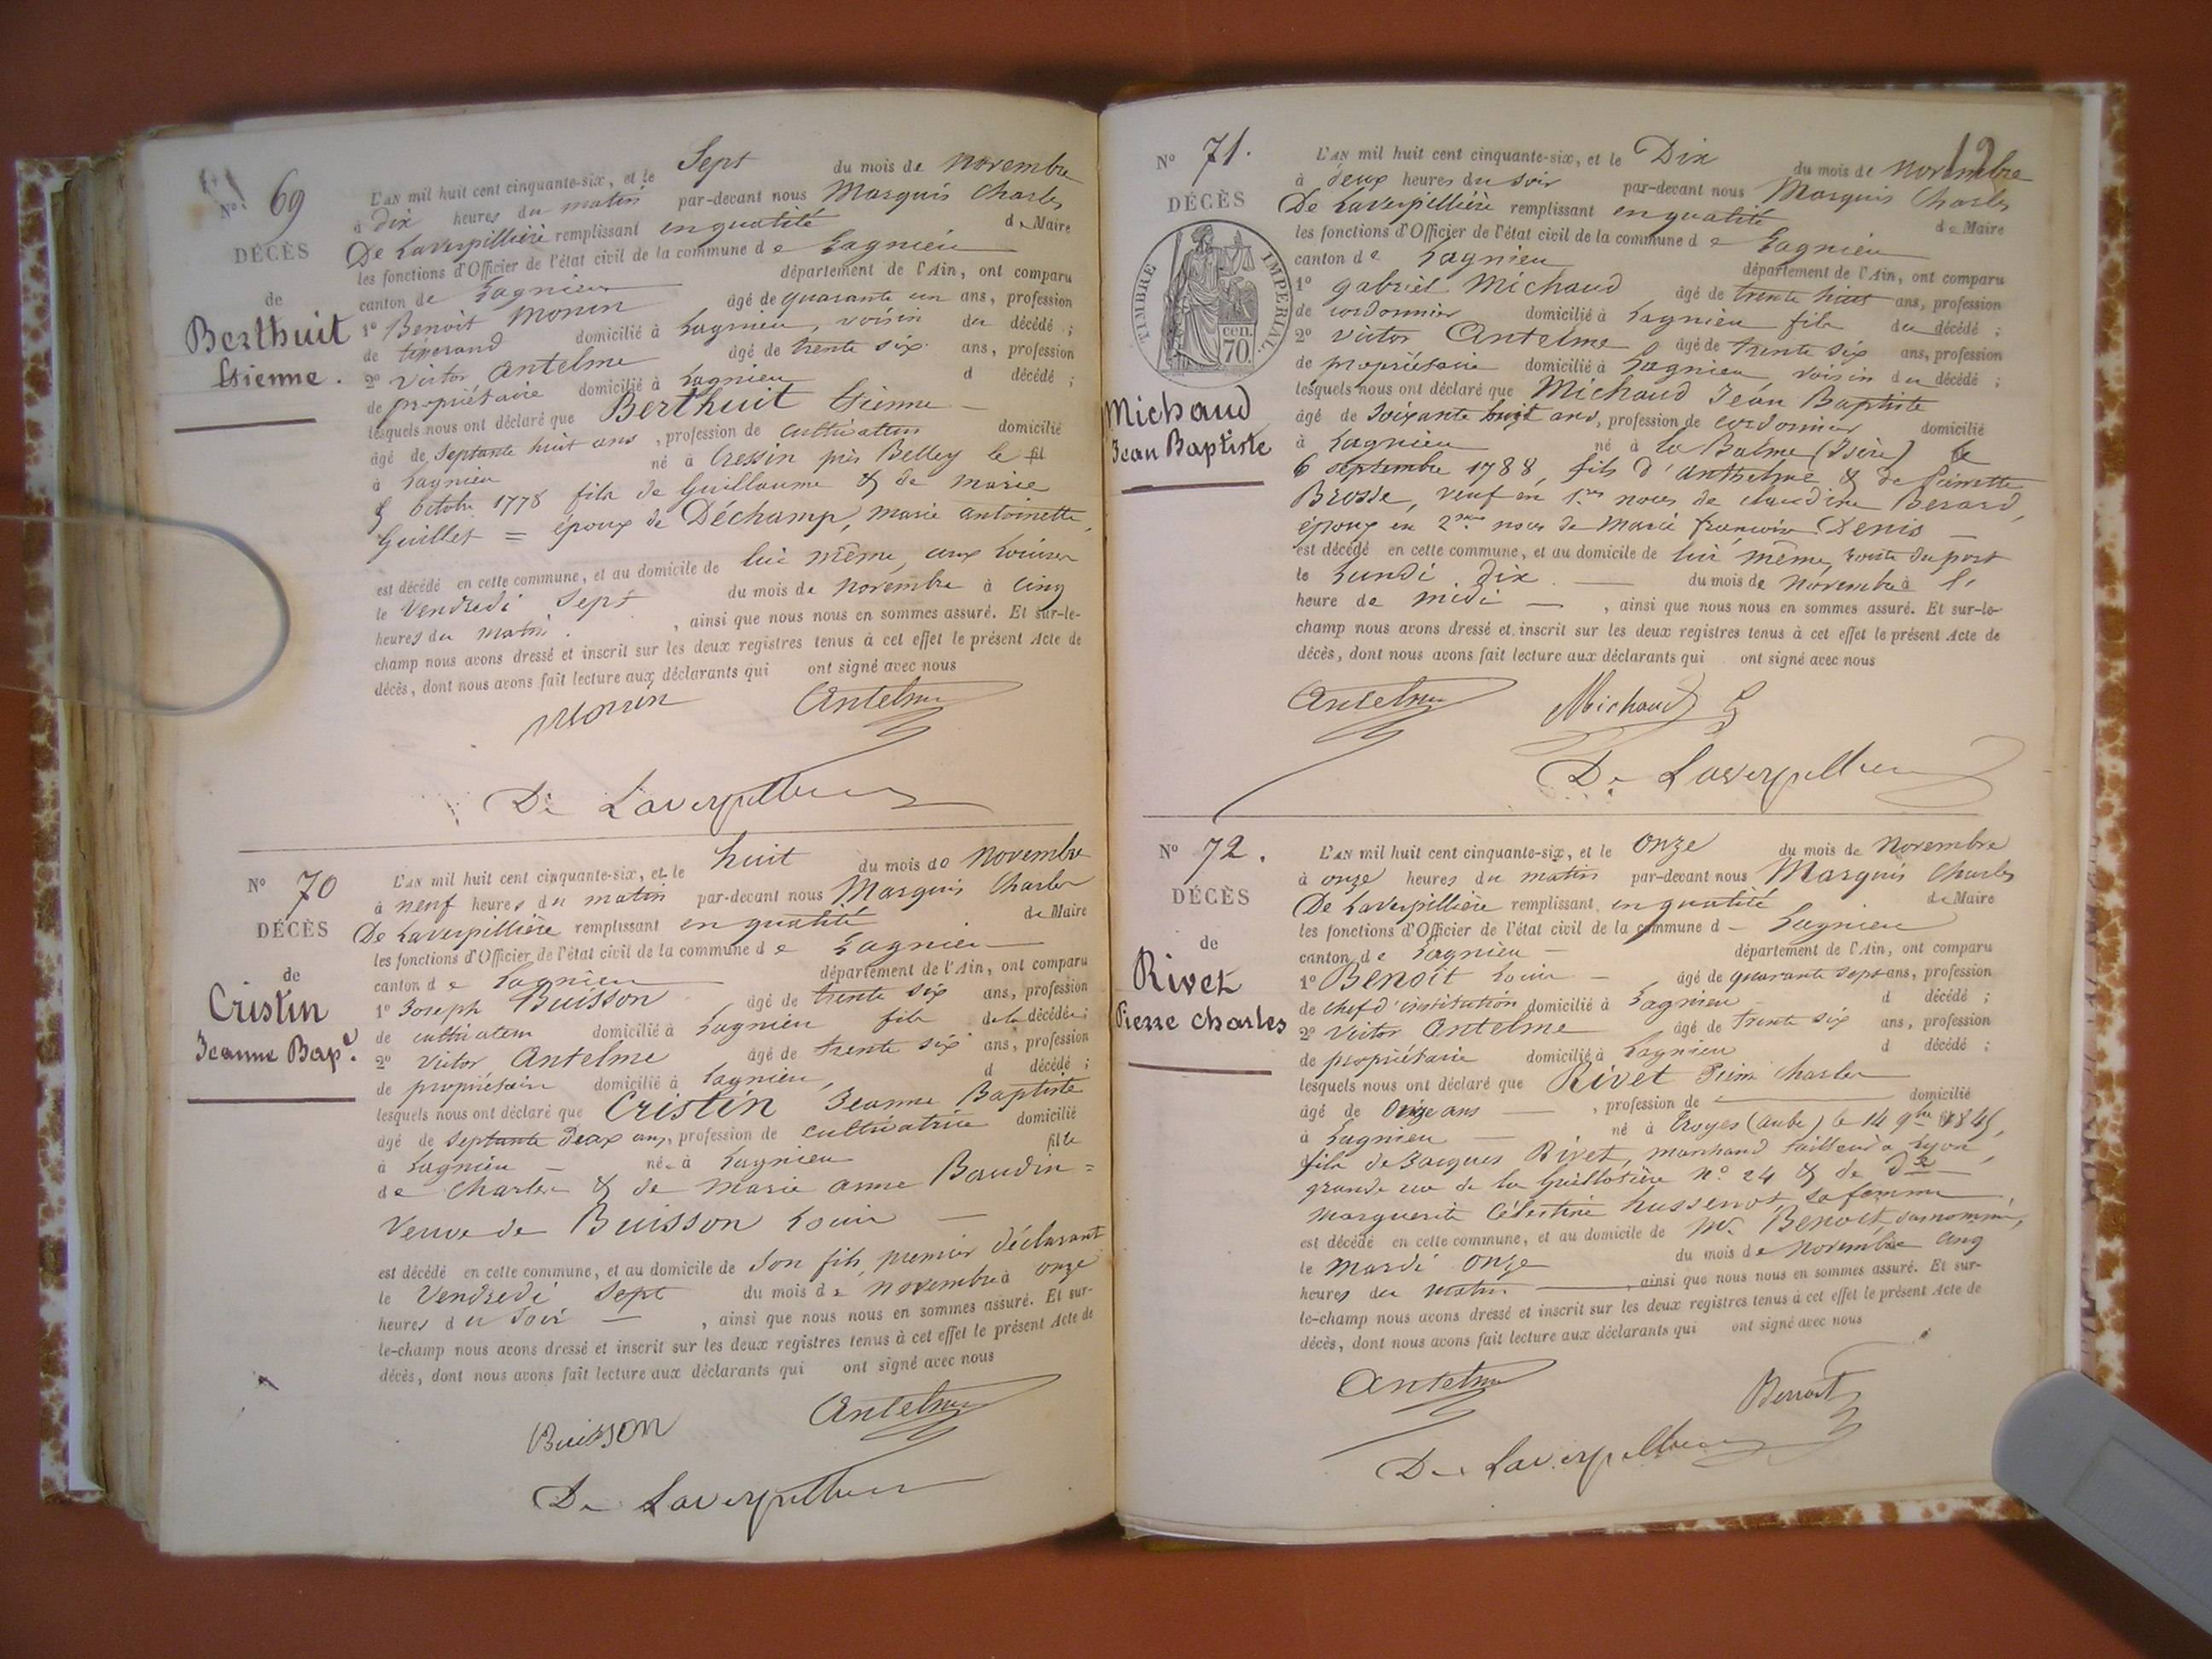 N° 69
DÉCÈS
de
Berthuit
Etienne.
L'AN mil huit cent cinquante-six, et le Sept du mois de novembre
à dix heures du matin par-devant nous Marquis Charles
De Laverpillière remplissant en qualité de Maire
les fonctions d'Officier de l'état civil de la commune de Lagnieu
canton de Lagnieu département de l'Ain, ont comparu
1° Benoit Monin âgé de quarante un ans, profession
de tisserand domicilié à Lagnieu, voisin du décédé;
2° Victor Antelme âgé de trente six ans, profession
de propriétaire domicilié à Lagnieu d décédé;
lesquels nous ont déclaré que Berthuit Etienne
âgé de septante huit ans, profession de cultivateur domicilié
à Lagnieu né à Cressin près Belley le fil
octobre 1778 fils de Guillaume & de marie
Guillet = époux de Déchamp, marie antoinette,
est décédé en cette commune, et au domicile de lui même,
le Vendredi Sept du mois de novembre à cinq
heures du matin, ainsi que nous nous en sommes assuré. Et sur-le-
champ nous avons dressé et inscrit sur les deux registres tenus à cet effet le présent Acte de
décès, dont nous avons fait lecture aux déclarants qui ont signé avec nous
Monin Antelme
De Laverpilliere
N° 70
DÉCÈS
de
Cristin
Jeanne Bap.e
L'AN mil huit cent cinquante-six, et le huit du mois de Novembre
à neuf heures du matin par-devant nous Marquis Charles
De Laverpillière remplissant en qualité de Maire
les fonctions d'Officier de l'état civil de la commune de Lagnieu
canton de Lagnieu département de l'Ain, ont comparu
1° Joseph Buisson âgé de trente six ans, profession
de cultivateur domicilié à Lagnieu fils de la décédée;
2° Victor Antelme âgé de trente six ans, profession
de propriétaire domicilié à Lagnieu, d décédé;
lesquels nous ont déclaré que Cristin Jeanne Baptiste
âgé de septante deux ans, profession de cultivatrice domicilié
à Lagnieu née à Lagnieu fille
de Charles & de Marie anne Baudin =
Veuve de Buisson Louis
est décédé en cette commune, et au domicile de son fils, premier déclarant
le Vendredi Sept du mois de novembre à onze
heures du soir, ainsi que nous nous en sommes assuré. Et sur-
le-champ nous avons dressé et inscrit sur les deux registres tenus à cet effet le présent Acte de
décès, dont nous avons fait lecture aux déclarants qui ont signé avec nous
Buisson Antelme
De Laverpilliere
N° 71.
DÉCÈS
TIMBRE IMPERIAL
70 cen.
Michaud
Jean Baptiste
L'AN mil huit cent cinquante-six, et le Dix du mois de novembre
à deux heures du soir par-devant nous Marquis Charles
De Laverpillière remplissant en qualité de Maire
les fonctions d'Officier de l'état civil de la commune de Lagnieu
canton de Lagnieu département de l'Ain, ont comparu
1° gabriel Michaud âgé de trente huit ans, profession
de cordonnier domicilié à Lagnieu fils du décédé;
2° Victor Antelme âgé de trente six ans, profession
de propriétaire domicilié à Lagnieu voisin du décédé;
lesquels nous ont déclaré que Michaud Jean Baptiste
âgé de soixante huit ans, profession de cordonnier domicilié
à Lagnieu né à la Balme (Isère) le
6 septembre 1788, fils d'anthelme & de Pierrette
Brosse, veuf en 1res noces de claudine Berard,
époux en 2mes noces de Marie françoise Denis
est décédé en cette commune, et au domicile de lui même, route du port
le Lundi dix du mois de novembre à l'
heure de midi, ainsi que nous nous en sommes assuré. Et sur-le-
champ nous avons dressé et inscrit sur les deux registres tenus à cet effet le présent Acte de
décès, dont nous avons fait lecture aux déclarants qui ont signé avec nous
Antelme Michaud G
De Laverpilliere
N° 72.
DÉCÈS
de
Rivet
Pierre Charles
L'AN mil huit cent cinquante-six, et le onze du mois de Novembre
à onze heures du matin par-devant nous Marquis Charles
De Laverpillière remplissant en qualité de Maire
les fonctions d'Officier de l'état civil de la commune d Lagnieu
canton de Lagnieu département de l'Ain, ont comparu
1° Benoit Louis âgé de quarante sept ans, profession
de chef d'institution domicilié à Lagnieu d décédé;
2° Victor Antelme âgé de trente six ans, profession
de propriétaire domicilié à Lagnieu d décédé;
lesquels nous ont déclaré que Rivet Pierre Charles
âgé de onze ans, profession de domicilié
à Lagnieu né à Troyes (aube) le 14 9bre 1845,
fils de Jacques Rivet, marchand tailleur à Lyon,
grande rue de la Guillotière n° 24 & de De
Marguerite Célestine hussenot, sa femme,
est décédé en cette commune, et au domicile de Mr. Benoit, susnommé,
le Mardi onze du mois de novembre cinq
heures du matin, ainsi que nous nous en sommes assuré. Et sur-
le-champ nous avons dressé et inscrit sur les deux registres tenus à cet effet le présent Acte de
décès, dont nous avons fait lecture aux déclarants qui ont signé avec nous
Antelme Benoit
De Laverpilliere